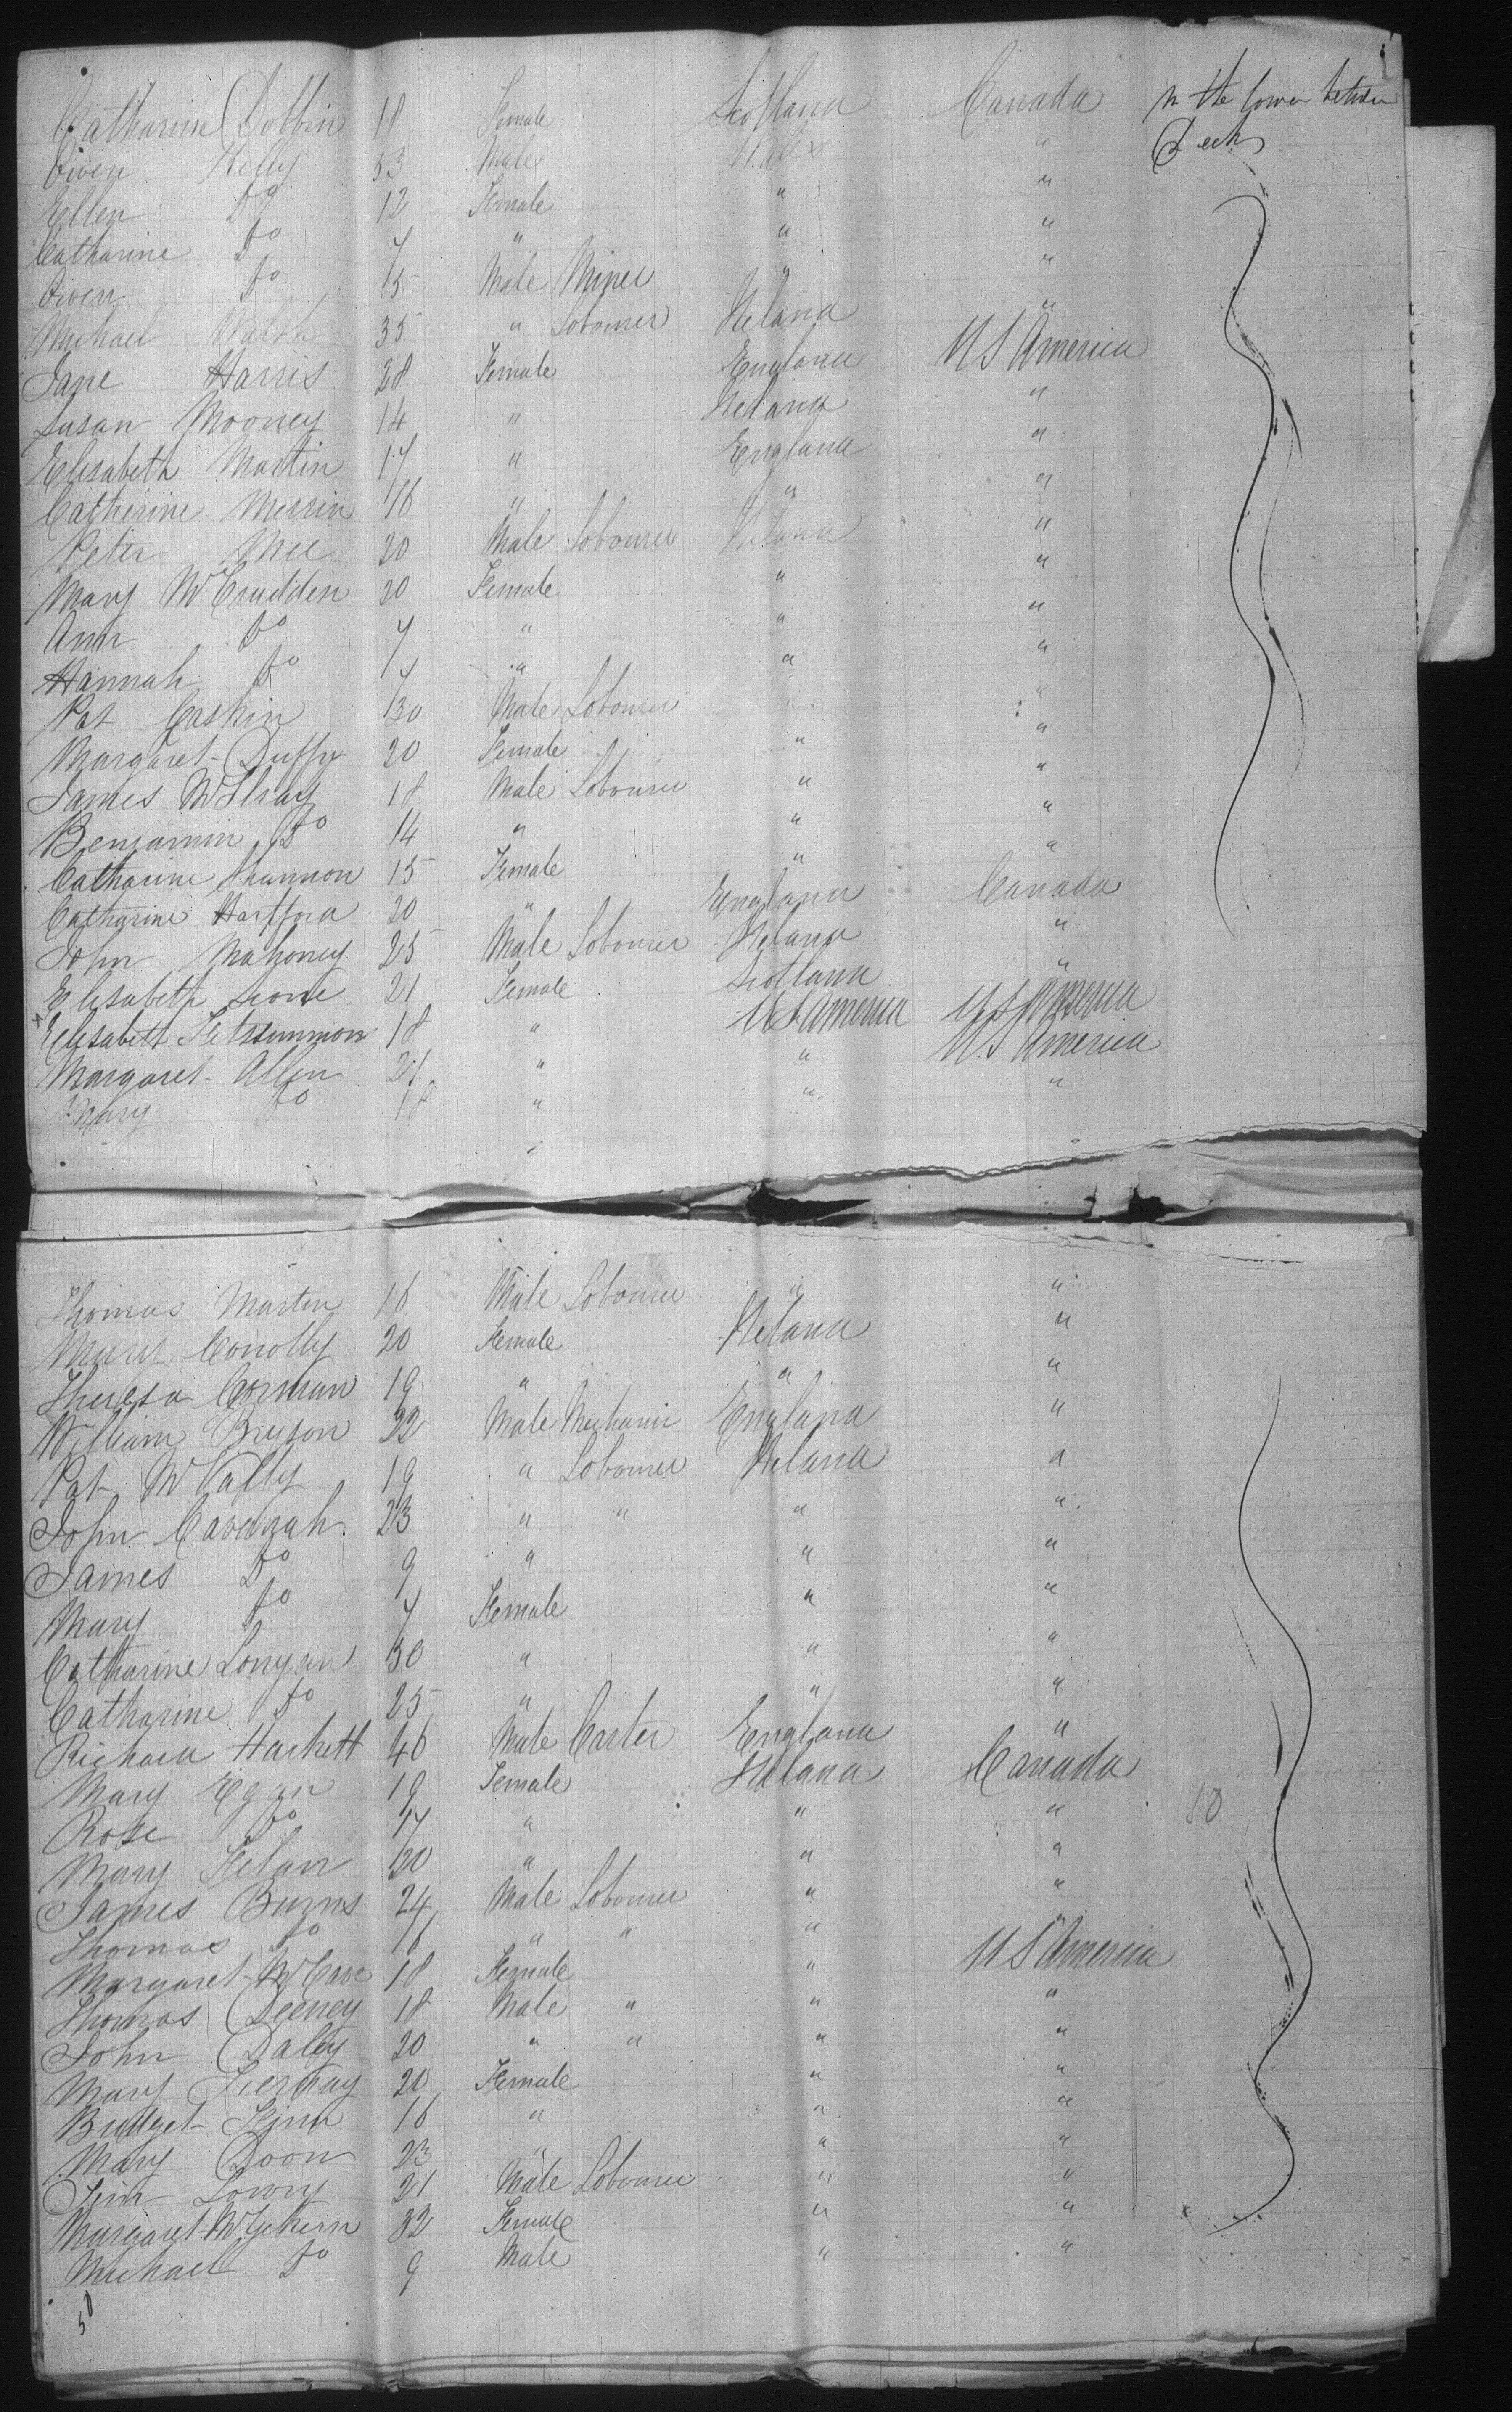 Catharine Dobbin 18 Female Scotland Canada In the lower between
Owen Kelly 53 Male Wales " Decks
Ellen Do 12 Female " "
Catharine Do 7 " " "
Owen Do 15 Male Miner " "
Michael Walsh 35 " Labourer Ireland "
Jane Harris 28 Female England U S America
Susan Mooney 14 " Ireland "
Elisabeth Martin 17 " England "
Catherine 16 " " "
Peter Mee 20 Male Labourer Ireland "
Mary McCrudden 30 Female " "
Ann Do 7 " " "
Hannah Do 4 " " "
Pat Caskin 30 Male Labourer " "
Margaret Duffy 20 Female " "
James McIlray 18 Male Labourer " "
Benjamin Do 14 " " "
Catharine Shannon 15 Female " "
Catharine Hartford 20 " England Canada
John Mahoney 25 Male Labourer Ireland "
Elisabeth 21 Female Scotland "
Elisabeth Fitzsimmon 18 " U S America U S America
Margaret Allen 21 " " U S America
Mary Do 18 " " "
"
Thomas Martin 16 Male Labourer " "
Mary Conolly 20 Female Ireland "
Theresa Gorman 19 " " "
William Bryson 32 Male Mechanic England "
Pat McVally 19 " Labourer Ireland "
John Cavenagh 23 " " " "
James Do 9 " " "
Mary Do 7 Female " "
Catharine Lonrgan 30 " " "
Catharine Do 25 " " "
Richard Harkett 46 Male Carter England "
Mary Egan 19 Female Ireland Canada
Rose Do 17 " " " 80
Mary 20 " " "
James Burns 24 Male Labourer " "
Thomas Do 16 " " " "
Margaret McCave 18 Female " U S America
Thomas Deeney 18 Male " " "
John Daley 20 " " " "
Mary Tiernay 20 Female " "
Bridget Finn 16 " " "
Mary Doon 23 " " "
Tim Lowry 21 Male Labourer " "
Margaret 32 Female " "
Michael Do 9 Male " "
50